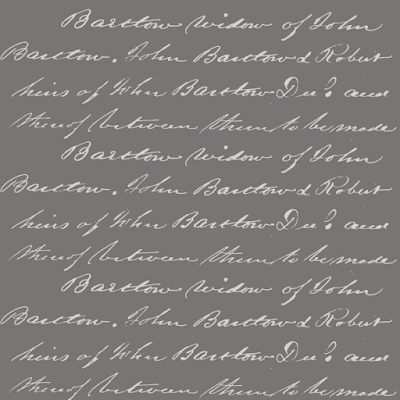 Barstow widow of John
Barstow. John Barstow & Robert
heirs of John Barstow Dec'd. and
thereof between them to be made
Barstow widow of John
Barstow. John Barstow & Robert
heirs of John Barstow Dec'd. and
thereof between them to be made
Barstow widow of John
Barstow. John Barstow & Robert
heirs of John Barstow Dec'd. and
thereof between them to be made